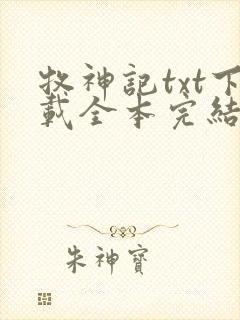 牧神記txt下
載全本完結
朱神寶